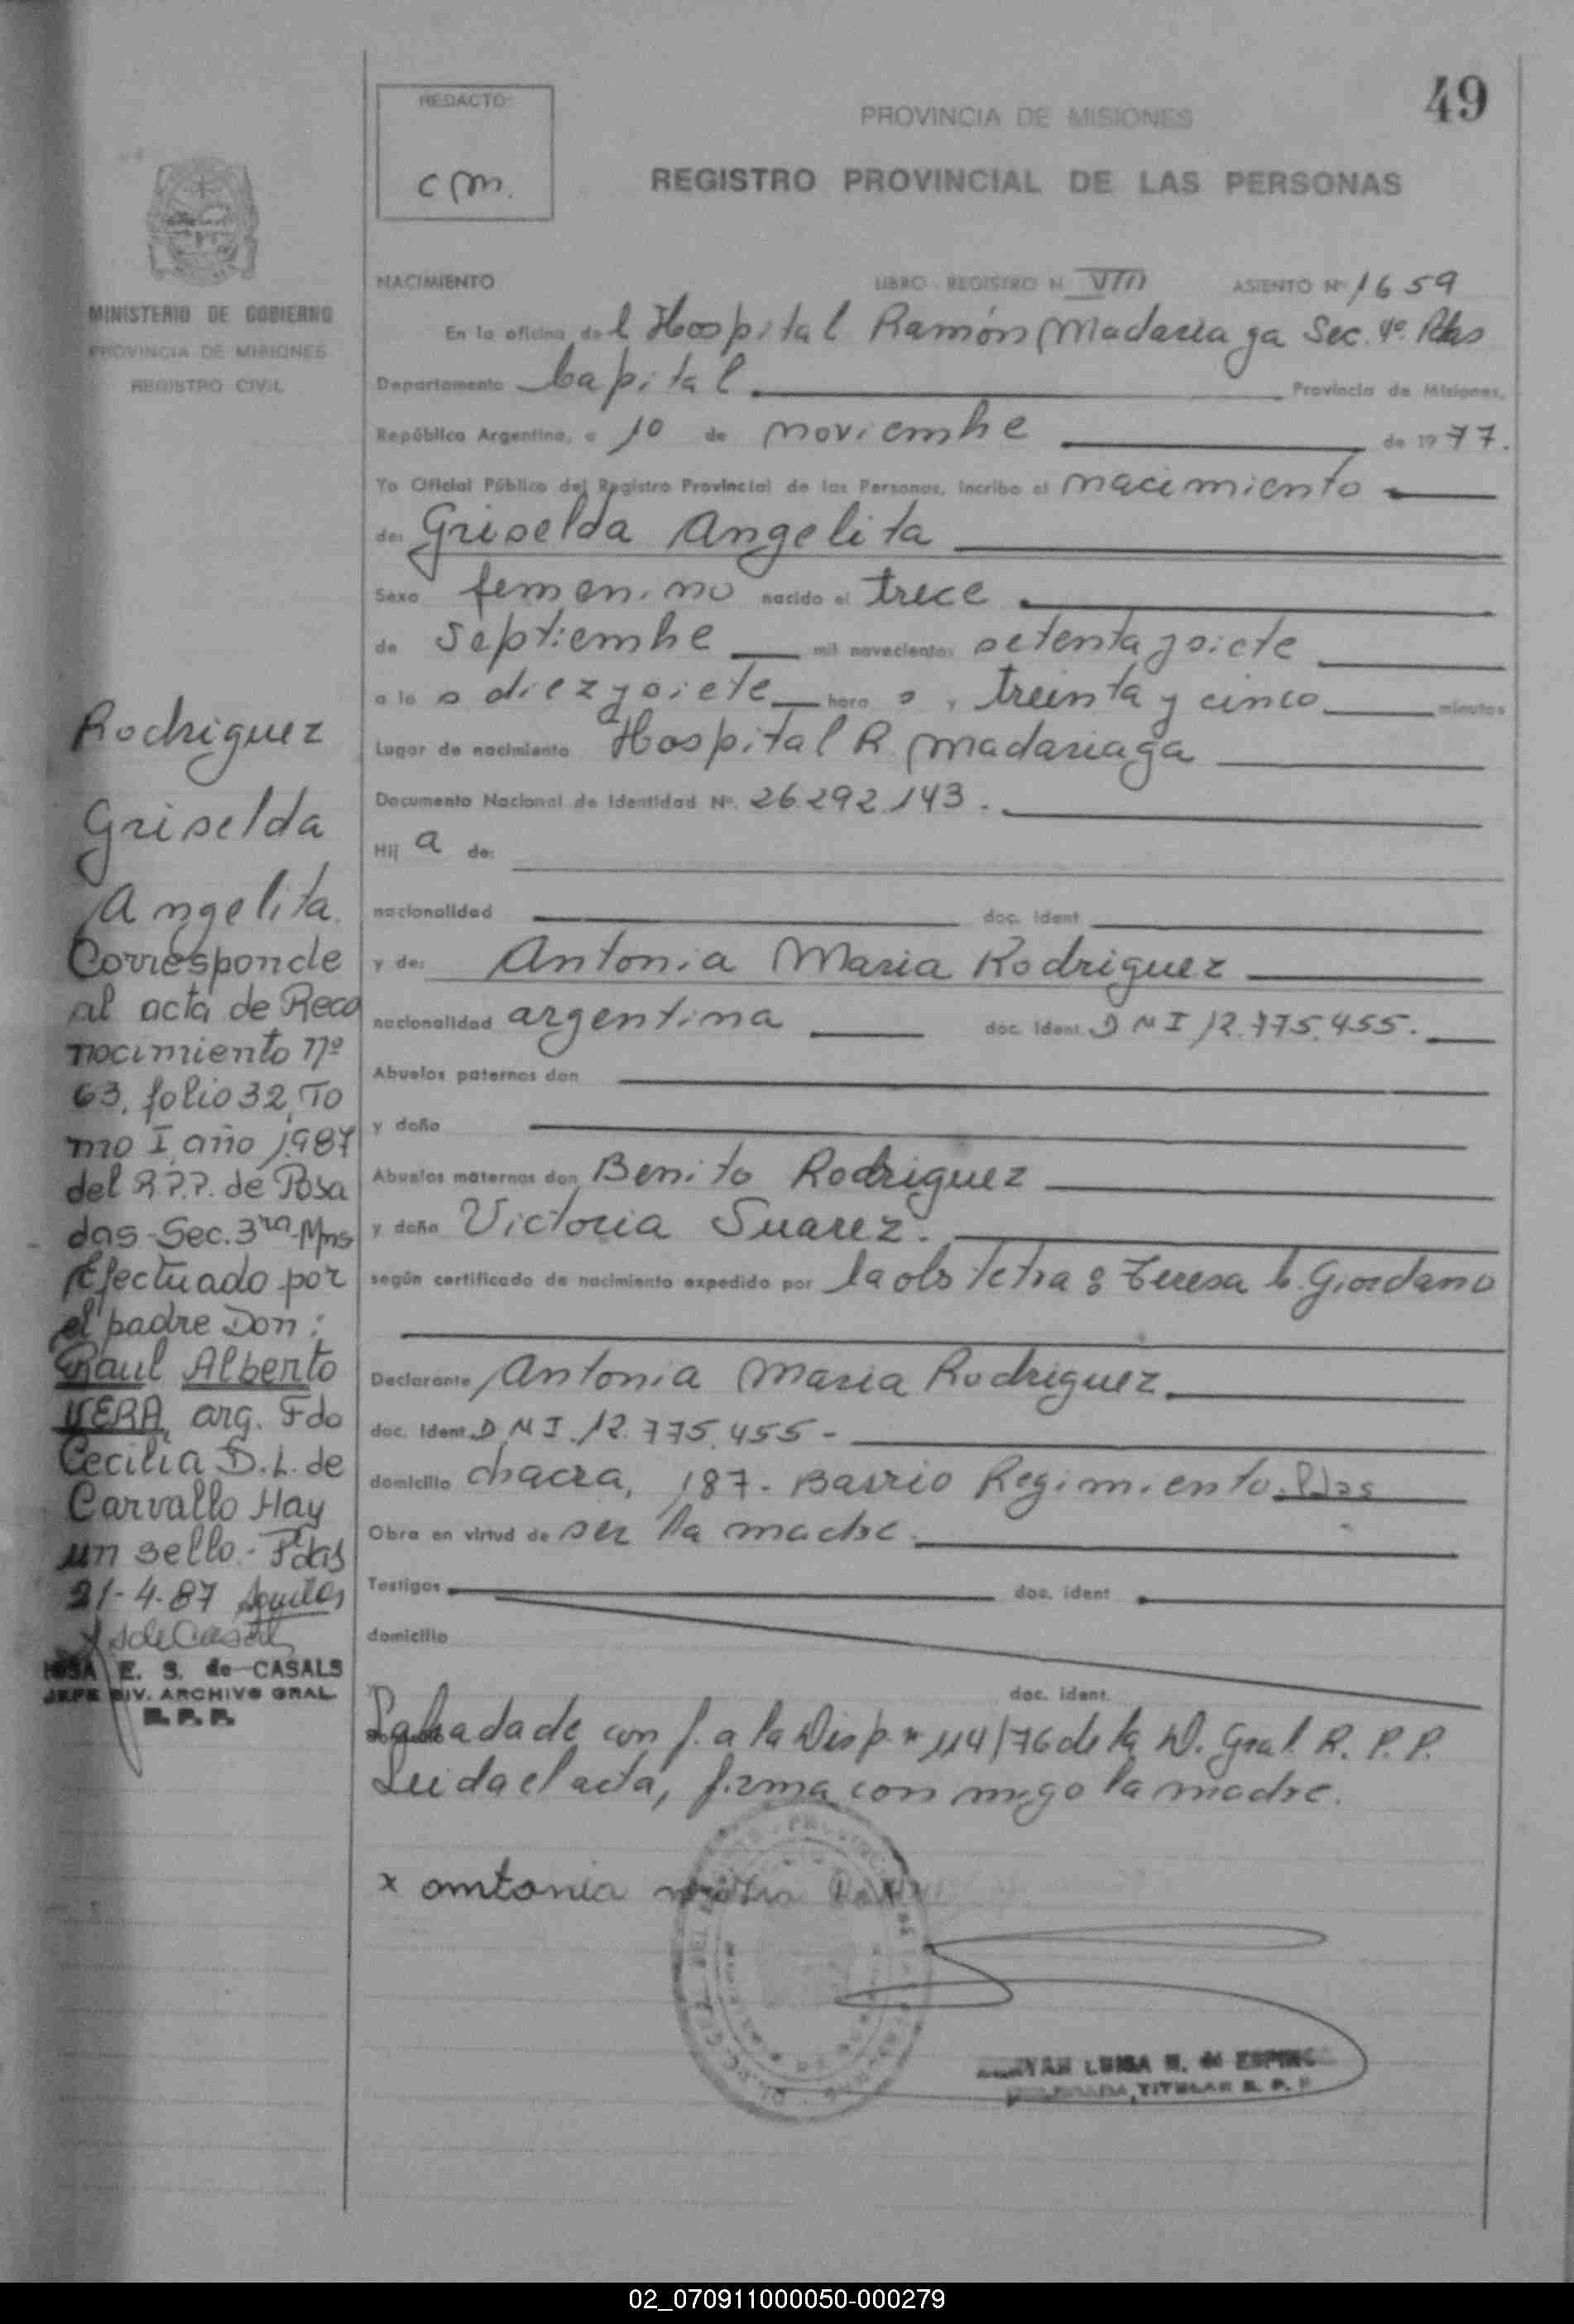 49
REDACTO:
cm.
PROVINCIA DE MISIONES
REGISTRO PROVINCIAL DE LAS PERSONAS
MINISTERIO DE GOBIERNO
PROVINCIA DE MISIONES
REGISTRO CIVIL
NACIMIENTO LIBRO REGISTRO N VIII ASIENTO Nº 1659
En la oficina del Hospital Ramón Madariaga Sec. 4ª. Pdas
Departamento Capital Provincia de Misiones,
República Argentina, a 10 de noviembre de 1977.
Yo Oficial Público del Registro Provincial de las Personas, incribo el nacimiento
de: Griselda Angelita
Sexo femenino nacido el trece
de septiembre mil novecientos setenta y siete
a la s diez y siete hora s y treinta y cinco minutos
Lugar de nacimiento Hospital R. Madariaga
Documento Nacional de Identidad Nº. 26.292.143.
Hij a de:
nacionalidad doc. ident
y de: Antonia Maria Rodriguez
nacionalidad argentina doc. ident. D N I 12.775.455.
Abuelos paternos don
y doña
Abuelos maternos don Benito Rodriguez
y doña Victoria Suarez.
según certificado de nacimiento expedido por la obstetra: Teresa C. Giordano
Declarante Antonia Maria Rodriguez
doc. ident. D N I. 12.775.455-
domicilio chacra, 187- Barrio Regimiento. Pdas
Obra en virtud de ser la madre.
Testigos doc. ident
domicilio
doc. ident.
Labrada de conf. a la Disp. nº 114/76 de la D. Gral. R. P. P.
Leida el acta, firma conmigo la madre.
x antonia maria
LUISA de ESPINO
TITULAR R. P. P
Rodriguez
Griselda
Angelita.
Corresponde
al acta de Reco
nocimiento nº
63, folio 32, To
mo I, año 1987
del R.P.P. de Posa
das-Sec. 3ra-Mns
Efectuado por
el padre Don:
Raul Alberto
VERA, arg. Fdo
Cecilia D.L. de
Carvallo Hay
un sello.- Pdas
21-4-87
E. S. de CASALS
JEFE DIV. ARCHIVO GRAL.
R.P.P.
02_070911000050-000279